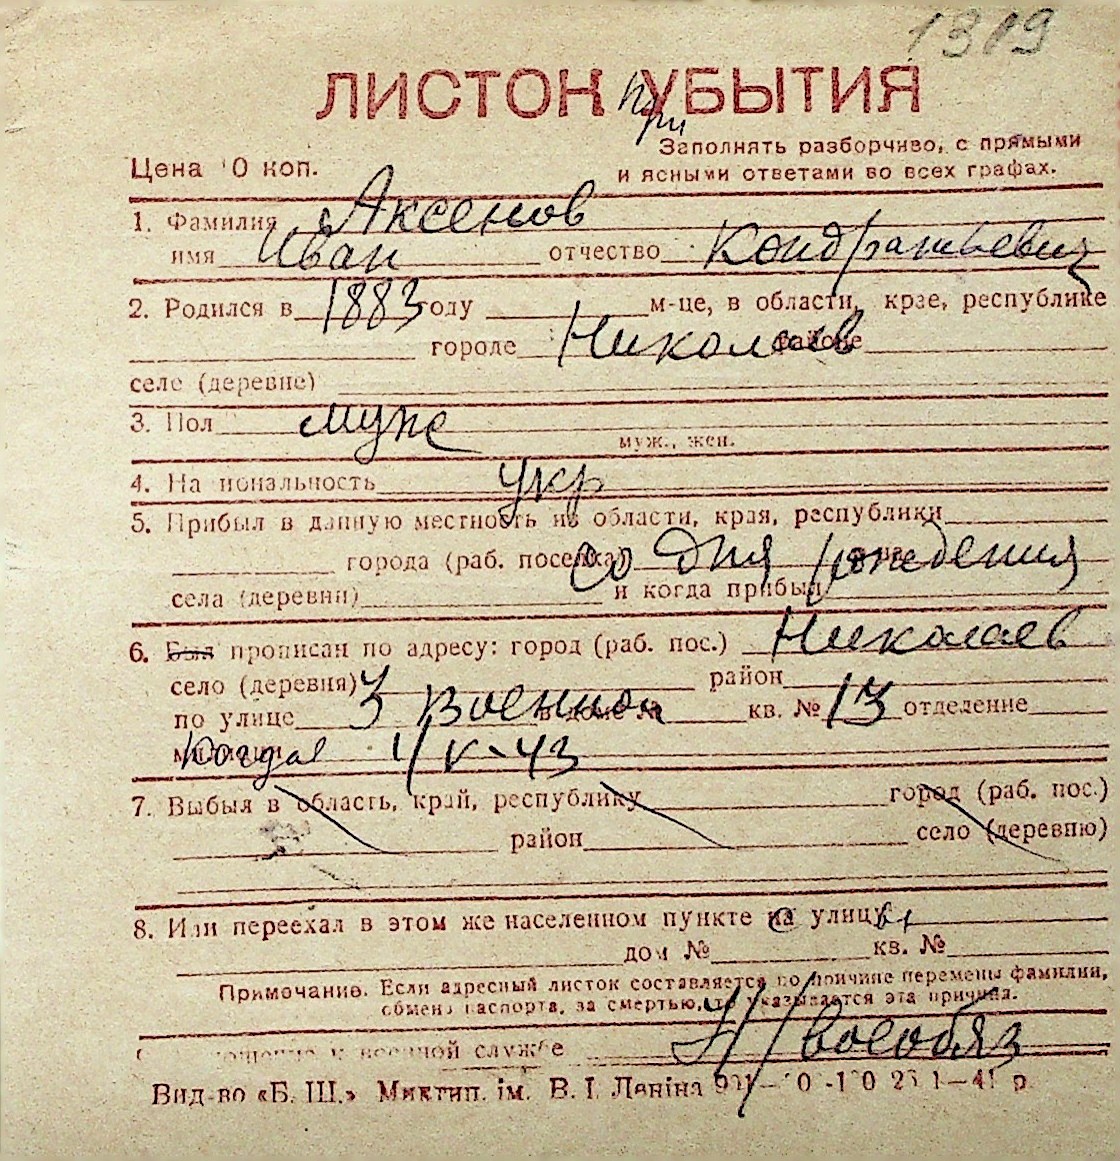 1319
ЛИСТОК при УБЫТИЯ
Заполнять разборчиво, с прямыми
Цена 10 коп. и ясными ответами во всех графах.
1. Фамилия Аксенов
имя Иван отчество Кондратьевич
2. Родился в 1883 году м-це, в области, крае, республике
городе Николаев районе
селе (деревне)
3. Пол муж
муж., жен.
4. Национальность укр
5. Прибыл в данную местность из области, края, республики
города (раб. поселка) со дня рождения
села (деревни) и когда прибыл
6. Был прописан по адресу: город (раб. пос.) Николаев
село (деревня) район
по улице 3 Военной в доме № кв. № 13 отделение
милиции Когда 1/V-43
7. Выбыл в область, край, республику город (раб. пос.)
район село (деревню)
8. Или переехал в этом же населенном пункте с улицы
дом № кв. №
Примечание. Если адресный листок составляется по причине перемены фамилии,
обмена паспорта, за смертью, то указывается эта причина.
отношение к военной службе Н/военобяз
Вид-во «Б. Ш.» Миктип. ім. В. І. Леніна